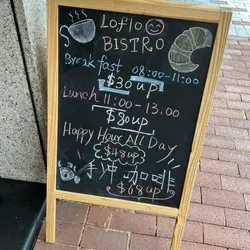 Loflo
BISTRO
Breakfast 08:00-11:00
$30 up
Lunch 11:00-13:00
$80 up
Happy Hour All Day
$48 up
手沖咖啡
$68 up